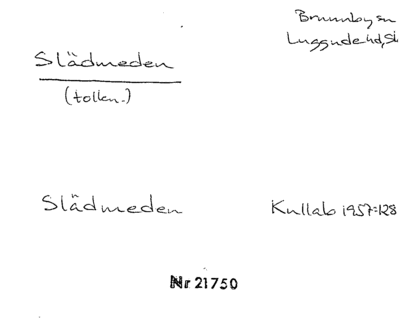 Brunnby sn
Luggude hd, Sk
Slädmeden
(tolkn.)
Slädmeden
Kullab 1957:128
Nr 21750